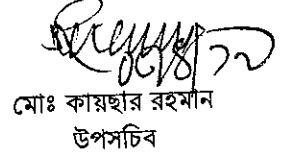 মোঃ কায়ছার রহমান
উপসচিব